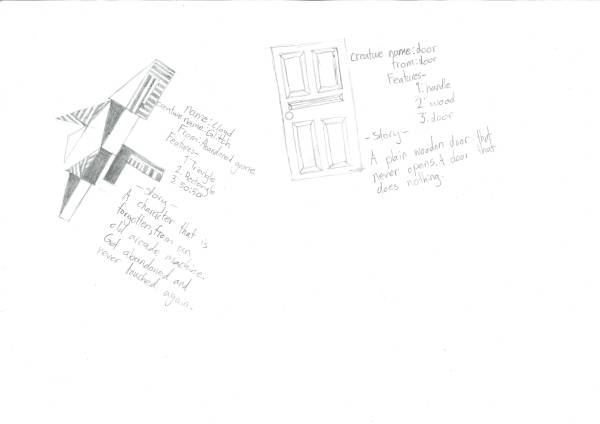 Name: Cloyd
creature name: Glitch
From: Abandoned game
Features-
1. Triangle
2. Rectangle
3. 50:50
- Story -
A character that is
forgotten, from an
old arcade machine.
Got abandoned and
never touched again.
creature name: door
from: door
Features-
1. handle
2. wood
3. door
- Story -
A plain wooden door that
never opens. A door that
does nothing.